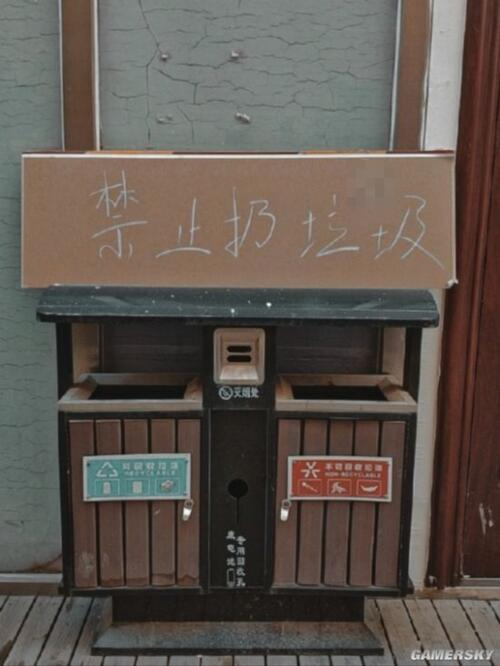 禁止扔垃圾
灭烟处
可回收垃圾
RECYCLABLE
不可回收垃圾
NON-RECYCLABLE
废电池
专用回收孔
GAMERSKY